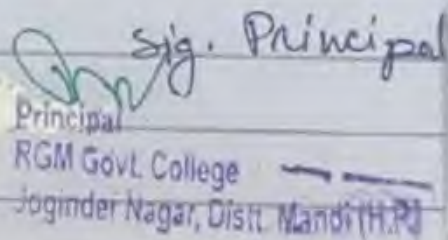 Sig. Principal
Principal
RGM Govt. College
Joginder Nagar, Distt. Mandi (H.P.)